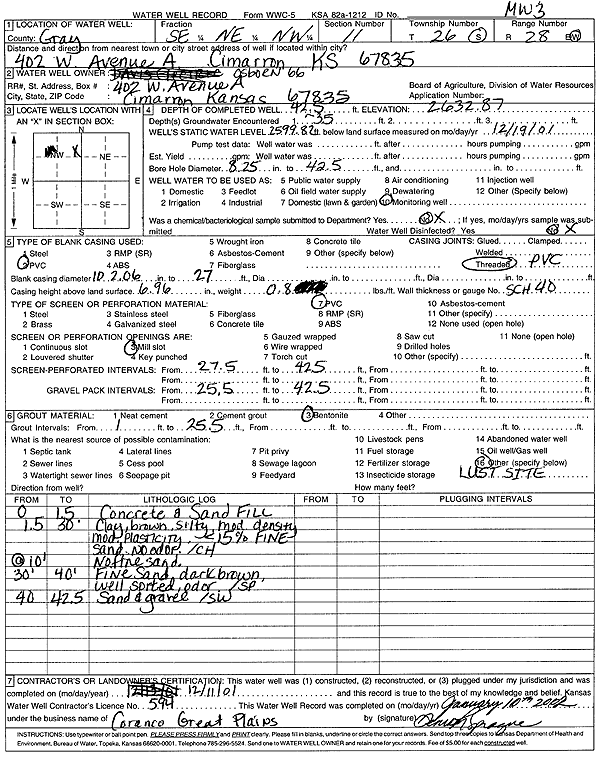 WATER WELL RECORD Form WWC-5 KSA 82a-1212 ID No. MW3
1 LOCATION OF WATER WELL: Fraction Section Number Township Number Range Number
County: Gray SE ¼ NE ¼ NW ¼ 11 T 26 S R 28 E/W
Distance and direction from nearest town or city street address of well if located within city?
402 W. Avenue A Cimarron KS 67835
2 WATER WELL OWNER: Osborn 66
RR#, St. Address, Box # : 402 W. Avenue A Board of Agriculture, Division of Water Resources
City, State, ZIP Code : Cimarron Kansas 67835 Application Number:
3 LOCATE WELL'S LOCATION WITH AN "X" IN SECTION BOX:
N
NW X NE
W E
SW SE
S
1 Mile
4 DEPTH OF COMPLETED WELL 42.5 ft. ELEVATION: 2632.87
Depth(s) Groundwater Encountered 1. ~35 ft. 2. ft. 3. ft.
WELL'S STATIC WATER LEVEL 2599.82 ft. below land surface measured on mo/day/yr 12/19/01
Pump test data: Well water was ft. after hours pumping gpm
Est. Yield gpm: Well water was ft. after hours pumping gpm
Bore Hole Diameter 8.25 in. to 42.5 ft., and in. to ft.
WELL WATER TO BE USED AS: 5 Public water supply 8 Air conditioning 11 Injection well
1 Domestic 3 Feedlot 6 Oil field water supply 9 Dewatering 12 Other (Specify below)
2 Irrigation 4 Industrial 7 Domestic (lawn & garden) 10 Monitoring well
Was a chemical/bacteriological sample submitted to Department? Yes No X ; If yes, mo/day/yrs sample was sub-
mitted Water Well Disinfected? Yes No X
5 TYPE OF BLANK CASING USED: 5 Wrought iron 8 Concrete tile CASING JOINTS: Glued Clamped
1 Steel 3 RMP (SR) 6 Asbestos-Cement 9 Other (specify below) Welded
2 PVC 4 ABS 7 Fiberglass Threaded PVC
Blank casing diameter ID 2.06 in. to 27 ft., Dia in. to ft., Dia in. to ft.
Casing height above land surface 6.96 in., weight 0.8 lbs./ft. Wall thickness or gauge No. SCH 40
TYPE OF SCREEN OR PERFORATION MATERIAL: 7 PVC 10 Asbestos-cement
1 Steel 3 Stainless steel 5 Fiberglass 8 RMP (SR) 11 Other (specify)
2 Brass 4 Galvanized steel 6 Concrete tile 9 ABS 12 None used (open hole)
SCREEN OR PERFORATION OPENINGS ARE: 5 Gauzed wrapped 8 Saw cut 11 None (open hole)
1 Continuous slot 3 Mill slot 6 Wire wrapped 9 Drilled holes
2 Louvered shutter 4 Key punched 7 Torch cut 10 Other (specify) ft.
SCREEN-PERFORATED INTERVALS: From 27.5 ft. to 42.5 ft., From ft. to ft.
From ft. to ft., From ft. to ft.
GRAVEL PACK INTERVALS: From 25.5 ft. to 42.5 ft., From ft. to ft.
From ft. to ft., From ft. to ft.
6 GROUT MATERIAL: 1 Neat cement 2 Cement grout 3 Bentonite 4 Other
Grout Intervals: From 1 ft. to 25.5 ft., From ft. to ft., From ft. to ft.
What is the nearest source of possible contamination: 10 Livestock pens 14 Abandoned water well
1 Septic tank 4 Lateral lines 7 Pit privy 11 Fuel storage 15 Oil well/Gas well
2 Sewer lines 5 Cess pool 8 Sewage lagoon 12 Fertilizer storage 16 Other (specify below)
3 Watertight sewer lines 6 Seepage pit 9 Feedyard 13 Insecticide storage LUST SITE
Direction from well? How many feet?
FROM TO LITHOLOGIC LOG FROM TO PLUGGING INTERVALS
0 1.5 Concrete & Sand FILL
1.5 30' Clay, brown, silty, mod. density
mod. plasticity, <15% FINE
sand. No odor. /CH
@ 10' No fine sand.
30' 40' FINE Sand, dark brown,
well sorted, odor /SP
40 42.5 Sand & gravel /SW
7 CONTRACTOR'S OR LANDOWNER'S CERTIFICATION: This water well was (1) constructed, (2) reconstructed, or (3) plugged under my jurisdiction and was
completed on (mo/day/year) 12/11/01 and this record is true to the best of my knowledge and belief. Kansas
Water Well Contractor's Licence No. 594 This Water Well Record was completed on (mo/day/yr) January 10th 2002
under the business name of Coranco Great Plains by (signature)
INSTRUCTIONS: Use typewriter or ball point pen. PLEASE PRESS FIRMLY and PRINT clearly. Please fill in blanks, underline or circle the correct answers. Send top three copies to Kansas Department of Health and
Environment, Bureau of Water, Topeka, Kansas 66620-0001. Telephone 785-296-5524. Send one to WATER WELL OWNER and retain one for your records. Fee of $5.00 for each constructed well.